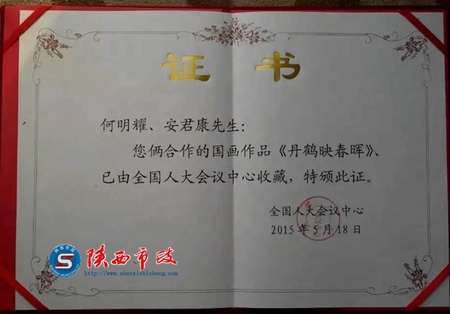 证 书
何明耀、安君康先生:
您俩合作的国画作品《丹鹤映春晖》、
已由全国人大会议中心收藏，特颁此证。
全国人大会议中心
2015 年 5 月 18 日
陕西市政
http://www.shanxishizheng.com